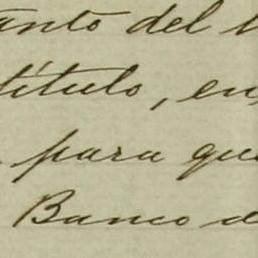 anto del
título, en
para que
Banco d